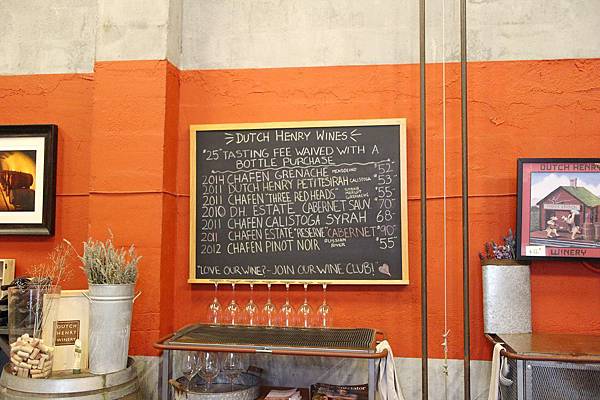 DUTCH HENRY WINES
$25 TASTING FEE WAIVED WITH A
BOTTLE PURCHASE
2014 CHAFEN GRENACHE MENDOCINO $52-
2011 DUTCH HENRY PETITE SIRAH CALISTOGA $53-
2011 CHAFEN "THREE RED HEADS" SYRAH GRENACHE $55
2010 DH. ESTATE CABERNET SAUV $70-
2011 CHAFEN CALISTOGA SYRAH 68-
2011 CHAFEN ESTATE "RESERVE" CABERNET $90-
2012 CHAFEN PINOT NOIR RUSSIAN RIVER $55
"LOVE OUR WINE?-JOIN OUR WINE CLUB!"
DUTCH HENRY
WINERY
DUTCH
HENRY
WINERY